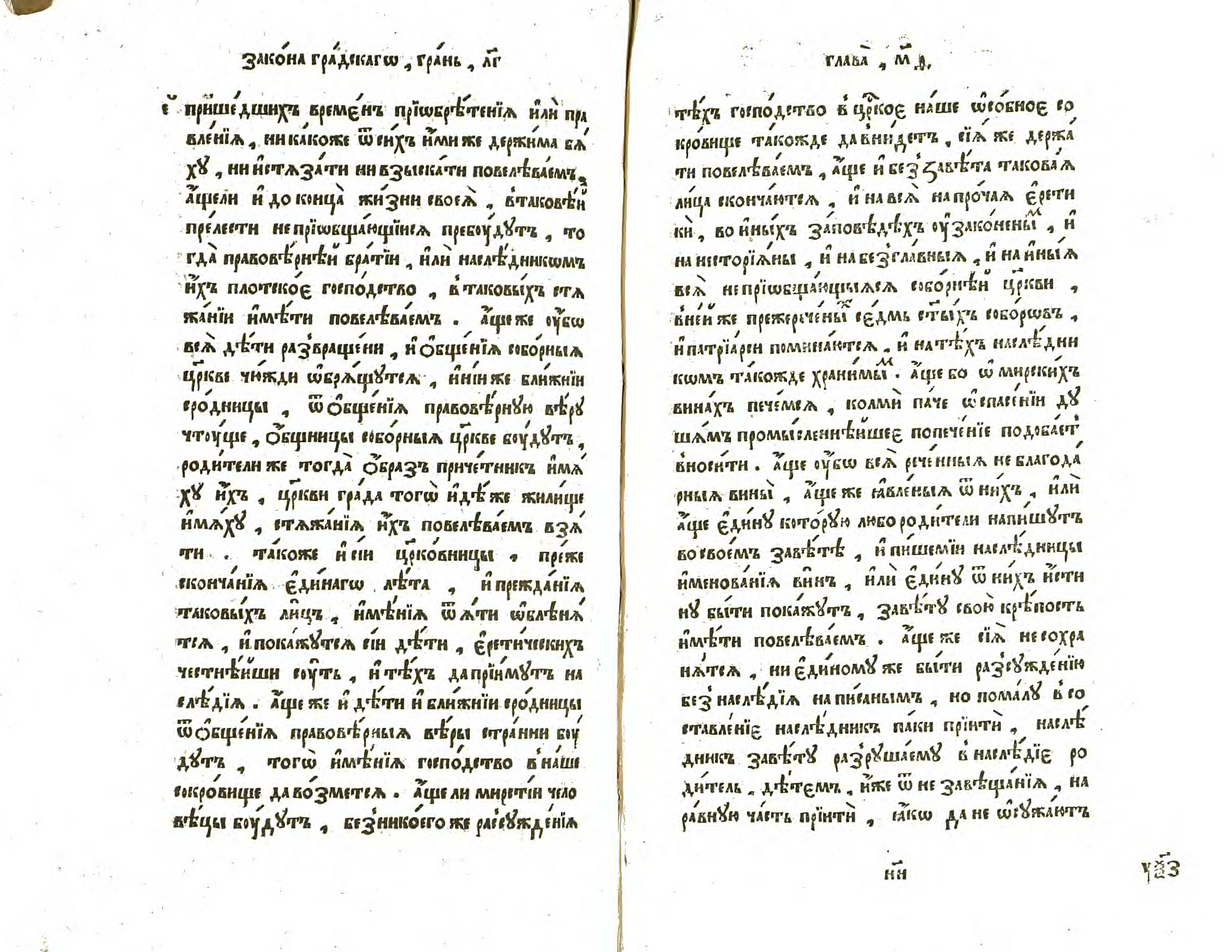 Зако́на гра́дскагѡ , гра́нь , л҃г
є҃ прише́дшихъ време́нъ прїѡбрѣ́тенїѧ и҆лѝ пра
вле́нїѧ , ника́коже ѿ си́хъ и҆́миже держи́ма бѧ́
хꙋ , ни и҆стѧза́ти ни взыска́ти повелѣва́емъ ,
а҆́щели и҆ до конца̀ жи́зни своеѧ̀ , в̾ такове́й
пре́лести не прїѡбща́ющїисѧ пребꙋ́дꙋтъ , то
гда̀ правовѣ́рнѣй бра́тїи , и҆лѝ наслѣ́дникѡмъ
и҆́хъ плотско́е госпо́дство , в̾ таковы́хъ стѧ
жа́нїи и҆мѣ́ти повелѣва́емъ . а҆́ще же ᲂу҆́бѡ
всѧ̀ дѣ́ти развраще́ни , и҆ ѻ҆бще́нїѧ собо́рныѧ
цр҃кве чю́жди ѡ҆брѧ́щꙋтсѧ , и҆ни́и же бли́жнїи
сро́дницы , ѿ ѻ҆бще́нїѧ правовѣ́рнꙋю вѣ́рꙋ
чтꙋ́ще , ѻ҆́бщницы собо́рныѧ цр҃кве бꙋ́дꙋтъ ,
роди́тели же тогда̀ ѻ҆́бразъ приче́тникъ и҆мѧ́
хꙋ и҆́хъ , цр҃кви гра́да тогѡ̀ и҆дѣ́же жили́ще
и҆мѧ́хꙋ , стѧжа́нїѧ и҆́хъ повелѣва́емъ взѧ́
ти . та́коже и҆ сі́и цр҃ко́вницы , пре́же
сконча́нїѧ є҆ди́нагѡ лѣ́та , и҆ прежда́нїѧ
таковы́хъ ли́цъ , и҆мѣ́нїѧ ѿѧ́ти ѡ҆блѣнѧ́
тсѧ , и҆ пока́жꙋтсѧ сі́и дѣ́ти , є҆рети́ческихъ
честнѣ́йши сꙋ́ть , и҆ тѣ́хъ да прїи́мꙋтъ на
слѣ́дїѧ . а҆́ще же и҆ дѣ́ти и҆ бли́жнїи сро́дницы
ѿ ѻ҆бще́нїѧ правовѣ́рныѧ вѣ́ры стра́нни бꙋ́
дꙋтъ , тогѡ̀ и҆мѣ́нїѧ госпо́дство в̾ на́ше
сокро́вище да во́зметсѧ . а҆́ще ли мирсті́и чело
вѣ́цы бꙋ́дꙋтъ , без̾ нико́егоже разсꙋжде́нїѧ
глава̀ , м҃д ,
тѣ́хъ госпо́дство в̾ цр҃кое на́ше ѡ҆со́бное со
кро́вище та́кожде да вни́детъ , сїѧ̀ же держа́
ти повелѣва́емъ , а҆́ще и҆ без̾ завѣ́та такова́ѧ
лица̀ сконча́ютсѧ , и҆ на всѧ̀ на про́чаѧ є҆рети
кѝ , во и҆ны́хъ за́повѣдѣхъ ᲂу҆зако́неныⷨ , и҆
на несторїѧ́ны , и҆ на безгла́вныѧ , и҆ на и҆ны́ѧ
всѧ̀ не прїѡбща́ющыѧсѧ собо́рнѣй цр҃кви ,
в̾ не́йже прежерече́ныⷯ се́дмь ст҃ы́хъ собо́рѡвъ ,
и҆ патрїа́рси помина́ютсѧ , и҆ на тѣ́хъ наслѣ́дни
кѡмъ та́кожде храни́мыⷨ . а҆́ще бо ѡ҆ мирски́хъ
вина́хъ пече́мсѧ , колмѝ па́че ѡ҆ спасе́нїи дꙋ
ша́мъ промы́сленнѣйшее попече́нїе подоба́етъ
вноси́ти . а҆́ще ᲂу҆́бѡ всѧ̀ рече́нныѧ не благода́
рныѧ вины̀ , а҆́ще же ꙗ҆вле́ныѧ ѿ ни́хъ , и҆лѝ
а҆́ще є҆ди́нꙋ котору́ю любо роди́тели напи́шꙋтъ
во свое́мъ завѣ́тѣ , и҆ пи́шемїи наслѣ́дницы
и҆менова́нїѧ ви́нъ , и҆лѝ є҆ди́нꙋ ѿ ни́хъ и҆́сти
нꙋ бы́ти пока́жꙋтъ , завѣ́тꙋ свою̀ крѣ́пость
и҆мѣ́ти повелѣва́емъ . а҆́ще же сїѧ̀ не сохра
нѧ́тсѧ , ни є҆ди́номꙋ же бы́ти разсꙋжде́нїю
без̾ наслѣ́дїѧ напи́санымъ , но пома́лꙋ в̾ со
ставле́нїе наслѣ́дникъ па́ки прїитѝ , наслѣ́
дникъ завѣ́тꙋ разрꙋша́емꙋ в̾ наслѣ́дїе ро
ди́тель , дѣ́темъ , и҆́же ѿ не завѣща́нїѧ , на
ра́внꙋю ча́сть прїитѝ , ꙗ҆́кѡ да не ѡ҆сꙋжа́ютъ
н҃и